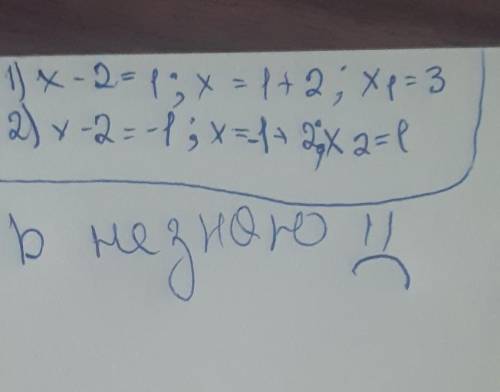 1) x - 2 = 1; x = 1 + 2; x1 = 3
2) x - 2 = -1; x = -1 + 2; x2 = 1
b незнаю !!